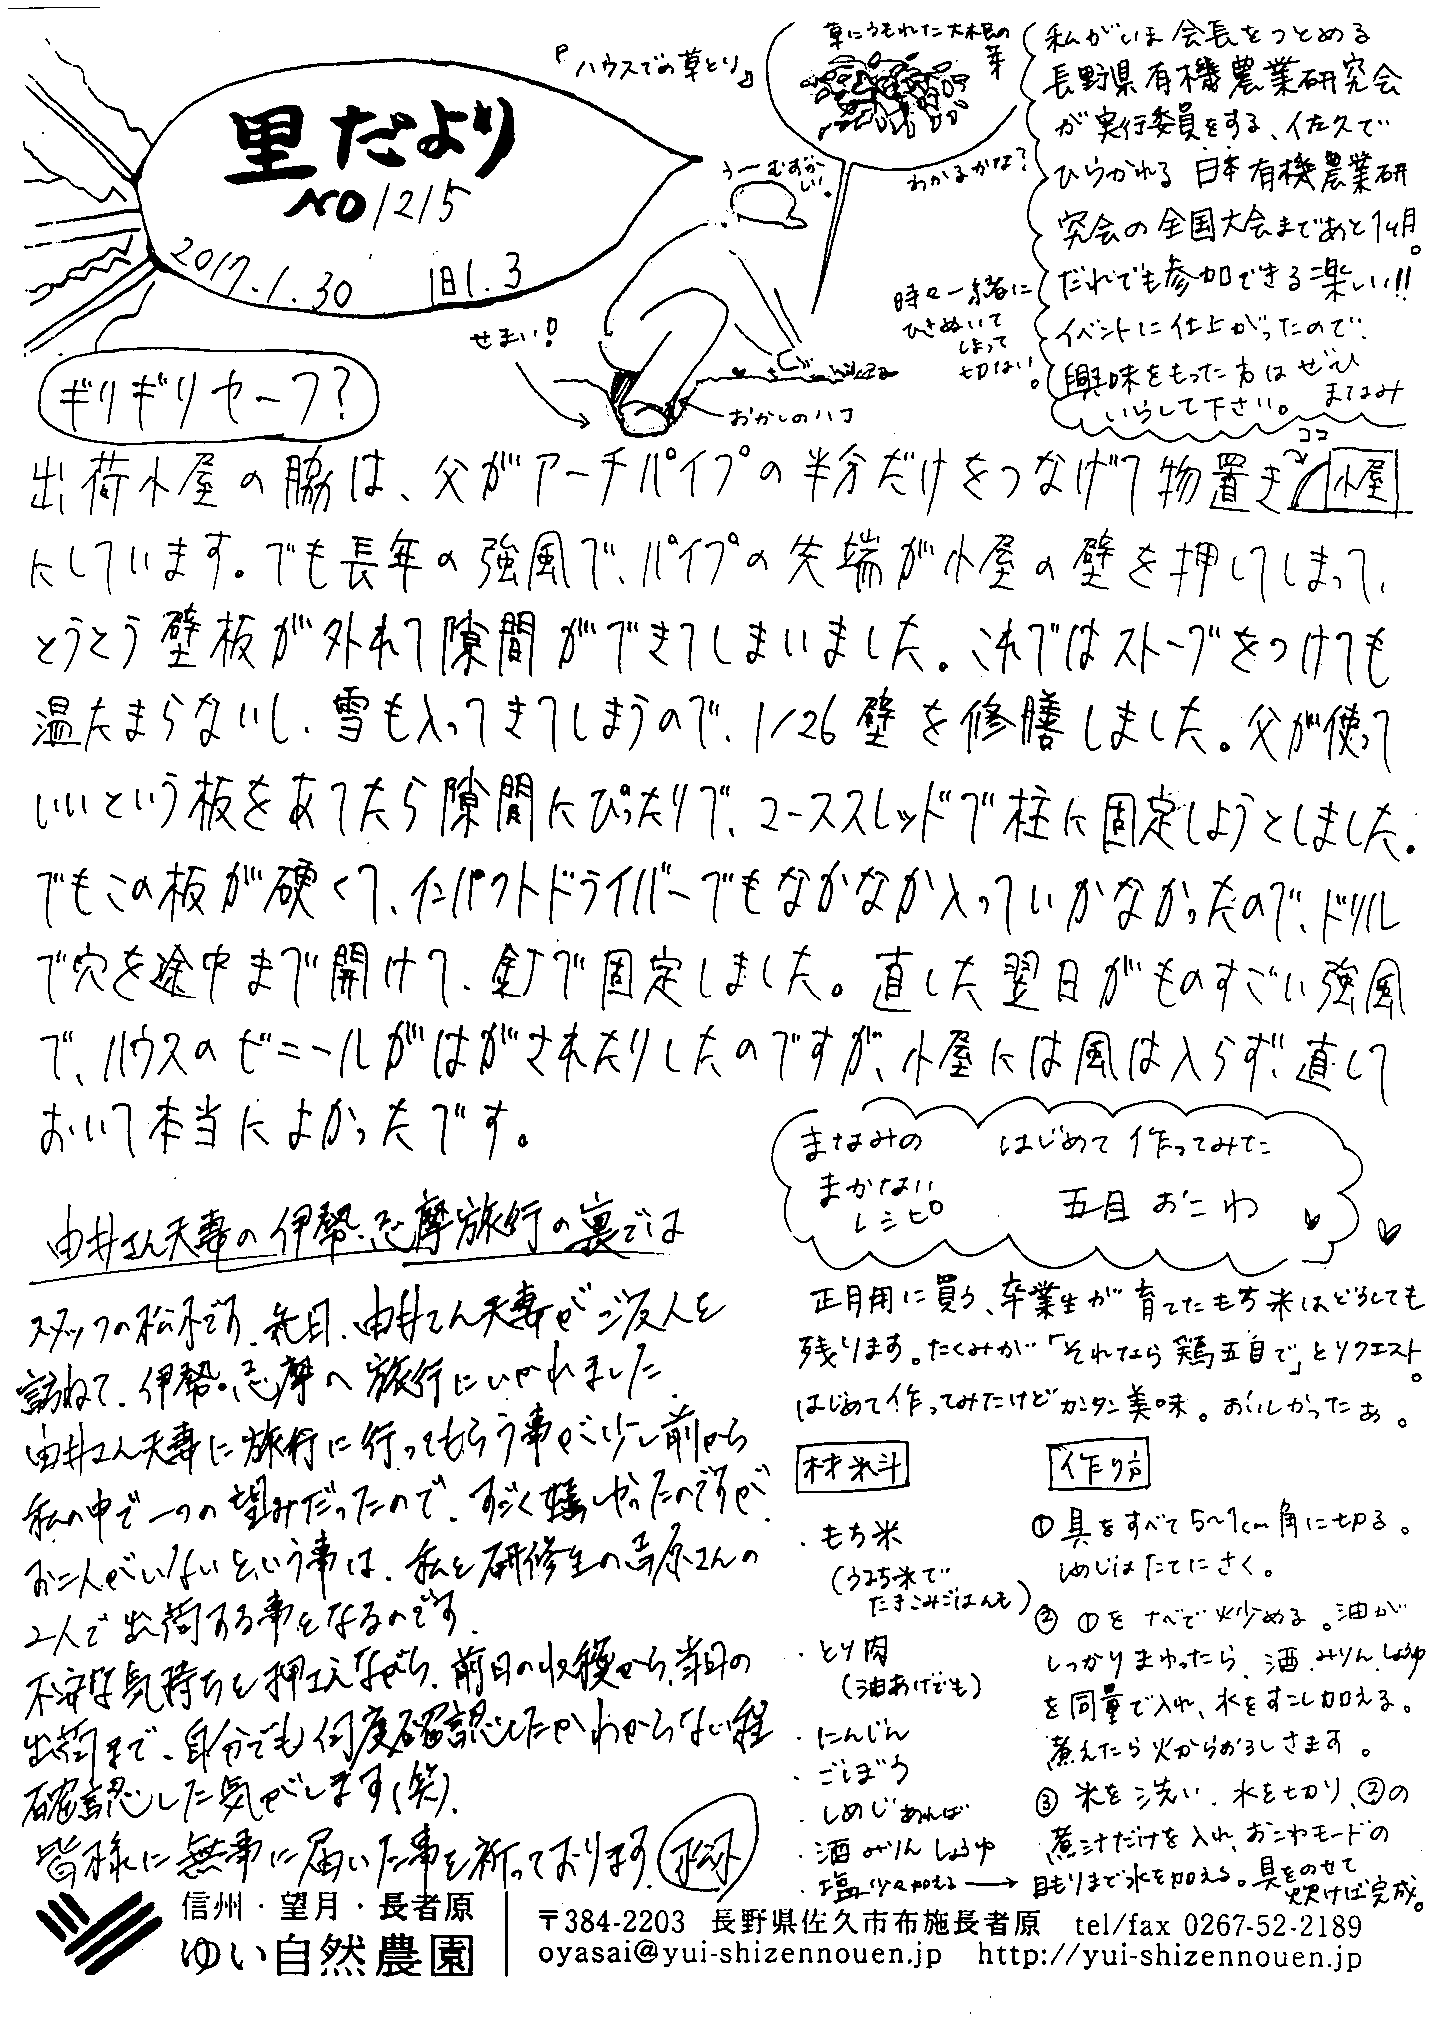 里だより
NO1215
2017.1.30 旧1.3
『ハウスでの草とり』
草にうもれた大根の
芽
わかるかな?
うーむずかしい。
せまい!
おかしのハコ
時々一緒に
ひきぬいて
しまって
切ない。
私がいま会長をつとめる
長野県有機農業研究会
が実行委員をする、佐久で
ひらかれる日本有機農業研
究会の全国大会まであと1ヶ月。
だれでも参加できる楽しい!!
イベントに仕上がったので、
興味をもった方はぜひ
いらして下さい。 まなみ
ギリギリセーフ?
ココ
小屋
出荷小屋の脇は、父がアーチパイプの半分だけをつなげて物置き
にしています。でも長年の強風で、パイプの先端が小屋の壁を押してしまって、
とうとう壁板が外れて隙間ができてしまいました。これではストーブをつけても
温たまらないし、雪も入ってきてしまうので、1/26壁を修膳しました。父が使って
いいという板をあてたら隙間にぴったりで、コーススレッドで柱に固定しようとしました。
でもこの板が硬くて、インパクトドライバーでもなかなか入っていかなかったので、ドリル
で穴を途中まで開けて、釘で固定しました。直した翌日がものすごい強風
で、ハウスのビニールがはがされたりしたのですが、小屋には風は入らず、直して
おいて本当によかったです。
由井さん夫妻の伊勢・志摩旅行の裏では
スタッフの松木です。先日、由井さん夫妻がご友人を
訪ねて、伊勢・志摩へ旅行にいかれました。
由井さん夫妻に旅行に行ってもらう事が少し前から
私の中で一つの望みだったので、すごく嬉しかったのですが、
お二人がいないという事は、私と研修生の吉原さんの
2人で出荷する事となるのです。
不安な気持ちを押さえながら、前日の収穫から、当日の
出荷まで、自分でも何度確認したかわからない程
確認した気がします(笑)。
皆様に無事に届いた事を祈っております。 松木
まなみの
まかない
レシピ
はじめて作ってみた
五目おこわ
正月用に買う、卒業生が育てたもち米はどうしても
残ります。たくみが「それなら鶏五目で」とリクエスト。
はじめて作ってみたけどカンタン美味。おいしかったぁ。
材料
・もち米
(うるち米で
たきこみごはんも)
・とり肉
(油あげでも)
・にんじん
・ごぼう
・しめじあれば
・酒 みりん しょうゆ
・塩少々加える→
作り方
① 具をすべて5〜7cm角に切る。
しめじはたてにさく。
② ①をナベで炒める。油が
しっかりまわったら、酒、みりん、しょうゆ
を同量で入れ、水をすこし加える。
煮えたら火からおろしさます。
③ 米を洗い、水を切り、②の
煮汁だけを入れ、おこわモードの
目もりまで水を加える。具をのせて
炊けば完成。
信州・望月・長者原
ゆい自然農園
〒384-2203 長野県佐久市布施長者原 tel/fax 0267-52-2189
oyasai@yui-shizennouen.jp http://yui-shizennouen.jp